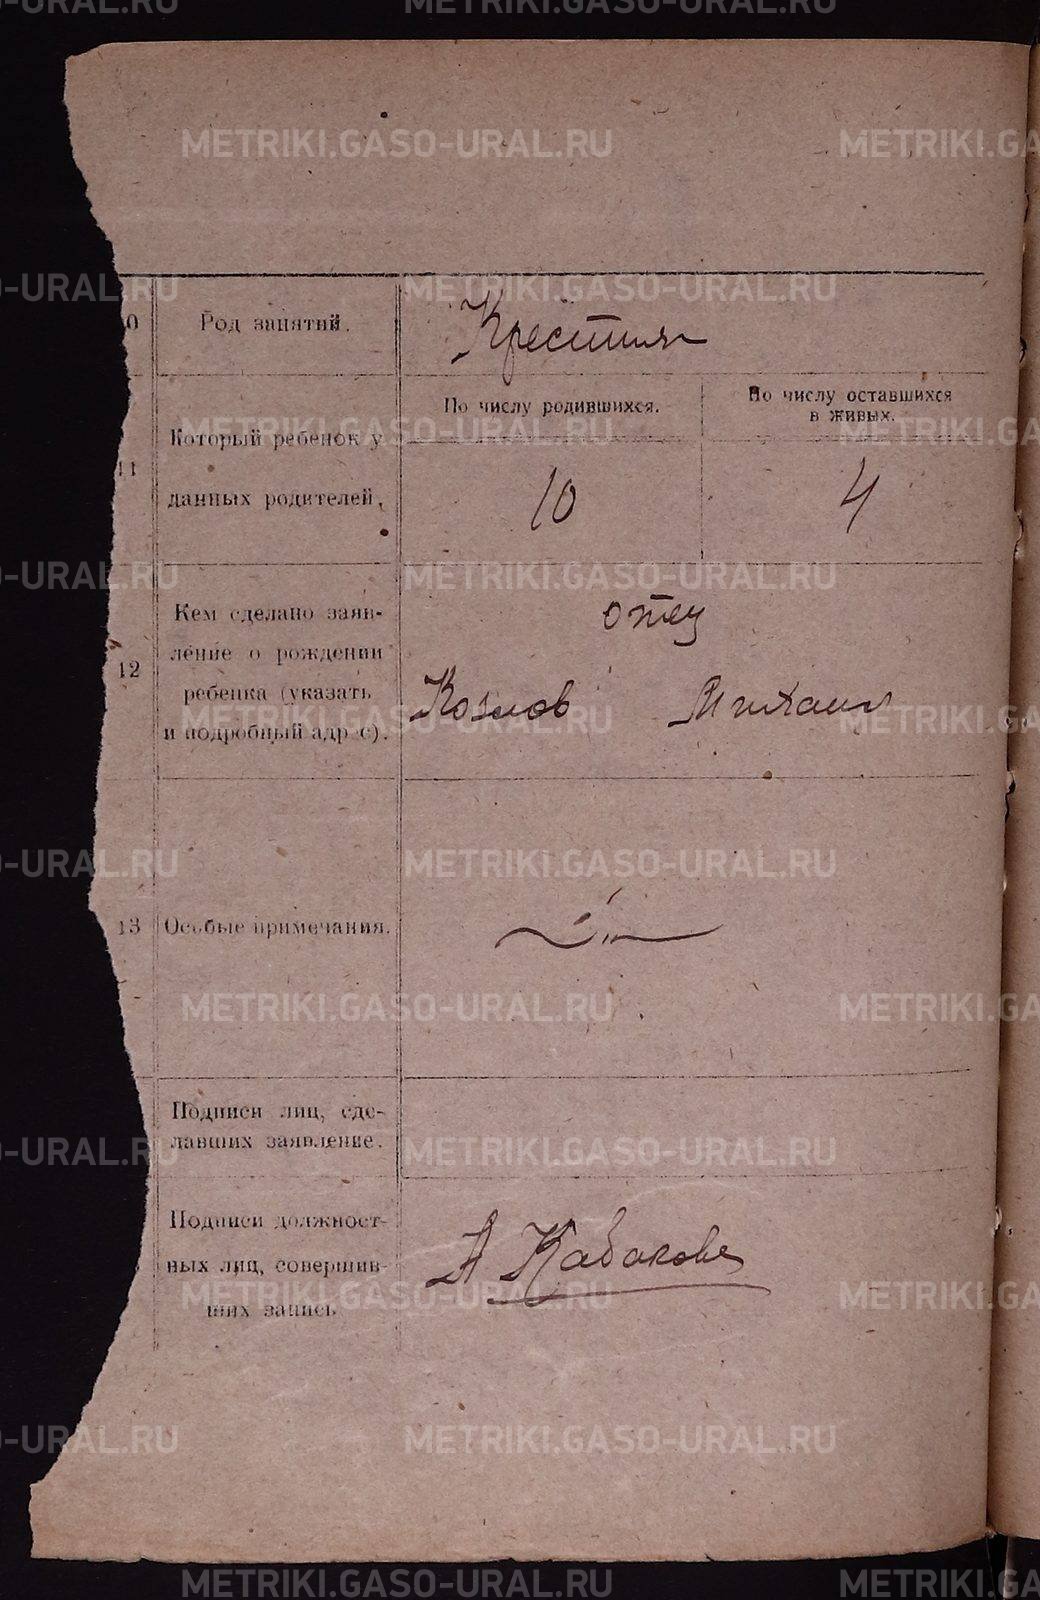 10 Род занятий. Крестиян
По числу родившихся. По числу оставшихся
в живых.
11 Который ребенок у
данных родителей. 10 4
12 Кем сделано заяв-
ление о рождении
ребенка (указать
и подробный адрес).
отец
Козлов Михаил
13 Особые примечания.
Подписи лиц, сде-
лавших заявление.
Подписи должност-
ных лиц, совершив-
ших запись
А Кабакова
METRIKI.GASO-URAL.RU